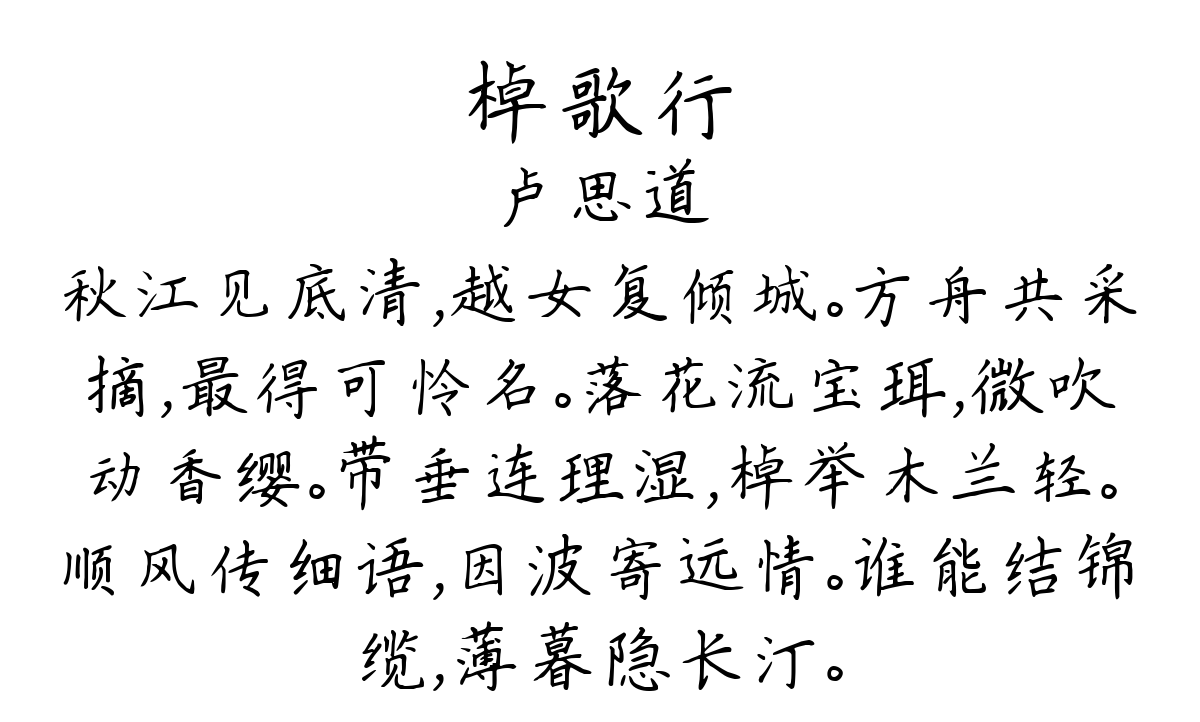 棹歌行
卢思道
秋江见底清,越女复倾城。方舟共采
摘,最得可怜名。落花流宝珥,微吹
动香缨。带垂连理湿,棹举木兰轻。
顺风传细语,因波寄远情。谁能结锦
缆,薄暮隐长汀。